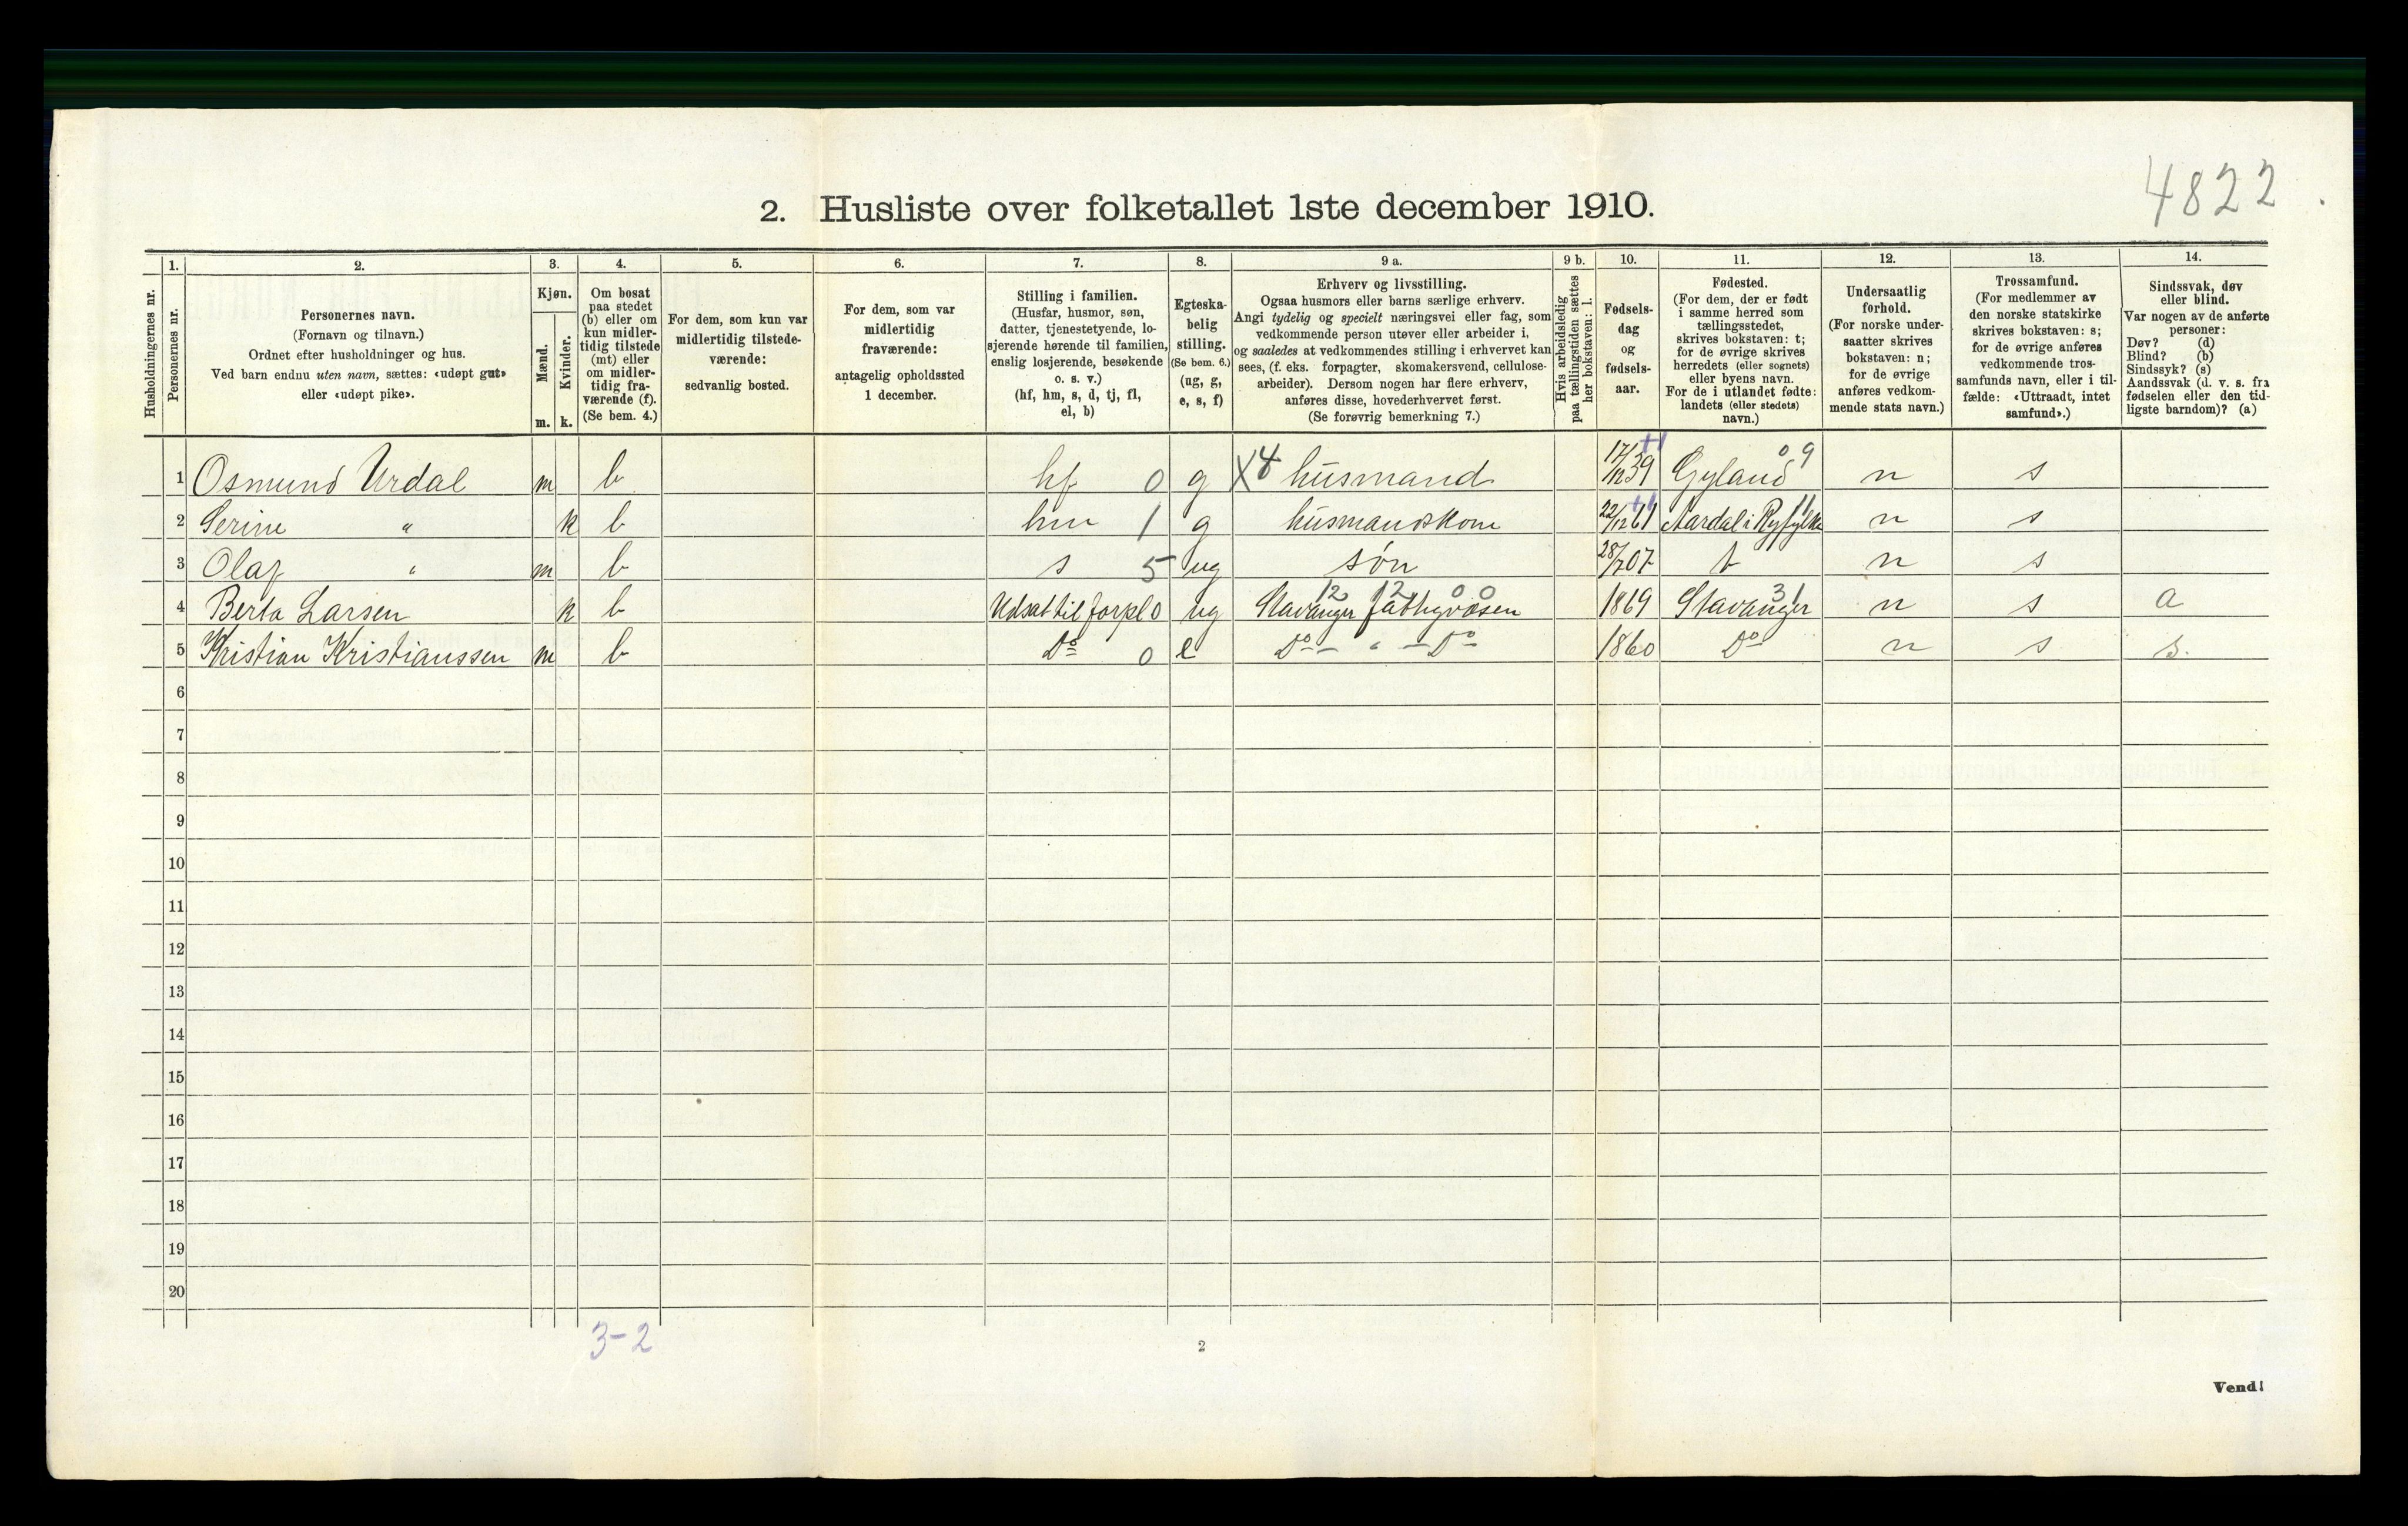 4822.
2. Husliste over folketallet 1ste december 1910.
Husholdningernes nr.
1.
Personernes nr.
2.
Personernes navn.
(Fornavn og tilnavn.)
Ordnet efter husholdninger og hus.
Ved barn endnu uten navn, sættes: «udøpt gut»
eller «udøpt pike».
3.
Kjøn.
Mænd.
Kvinder.
m. k.
4.
Om bosat
paa stedet
(b) eller om
kun midler-
tidig tilstede
(mt) eller
om midler-
tidig fra-
værende (f).
(Se bem. 4.)
5.
For dem, som kun var
midlertidig tilstede-
værende:
sedvanlig bosted.
6.
For dem, som var
midlertidig
fraværende:
antagelig opholdssted
1 december.
7.
Stilling i familien.
(Husfar, husmor, søn,
datter, tjenestetyende, lo-
sjerende hørende til familien,
enslig losjerende, besøkende
o. s. v.)
(hf, hm, s, d, tj, fl,
el, b)
8.
Egteska-
belig
stilling.
(Se bem. 6.)
(ug, g,
e, s, f)
9 a.
Erhverv og livsstilling.
Ogsaa husmors eller barns særlige erhverv.
Angi tydelig og specielt næringsvei eller fag, som
vedkommende person utøver eller arbeider i,
og saaledes at vedkommendes stilling i erhvervet kan
sees, (f. eks. forpagter, skomakersvend, cellulose-
arbeider). Dersom nogen har flere erhverv,
anføres disse, hovederhvervet først.
(Se forøvrig bemerkning 7.)
9 b.
Hvis arbeidsledig
paa tællingstiden sættes
her bokstaven: l.
10.
Fødsels-
dag
og
fødsels-
aar.
11.
Fødested.
(For dem, der er født
i samme herred som
tællingsstedet,
skrives bokstaven: t;
for de øvrige skrives
herredets (eller sognets)
eller byens navn.
For de i utlandet fødte:
landets (eller stedets)
navn.)
12.
Undersaatlig
forhold.
(For norske under-
saatter skrives
bokstaven: n;
for de øvrige
anføres vedkom-
mende stats navn.)
13.
Trossamfund.
(For medlemmer av
den norske statskirke
skrives bokstaven: s;
for de øvrige anføres
vedkommende tros-
samfunds navn, eller i til-
fælde: «Uttraadt, intet
samfund».)
14.
Sindssvak, døv
eller blind.
Var nogen av de anførte
personer:
Døv? (d)
Blind? (b)
Sindssyk? (s)
Aandssvak (d. v. s. fra
fødselen eller den tid-
ligste barndom)? (a)
1 Osmund Urdal m b hf 0 g X4 husmand 17/12 39 Gyland 09 n s
2 Serine " k b hm 1 g husmandskone 22/12 61 Aardal i Ryfylke n s
3 Olaf " m b s 5 ug søn 28/7 07 t n s
4 Berta Larsen k b Udsat til forpl 0 ug Stavanger fattigvæsen 12 12 0 0 1869 Stavanger 31 n s a
5 Kristian Kristianssen m b Do 0 e Do - " - Do 1860 Do n s s.
6
7
8
9
10
11
12
13
14
15
16
17
18
19
20
3-2
2
Vend!